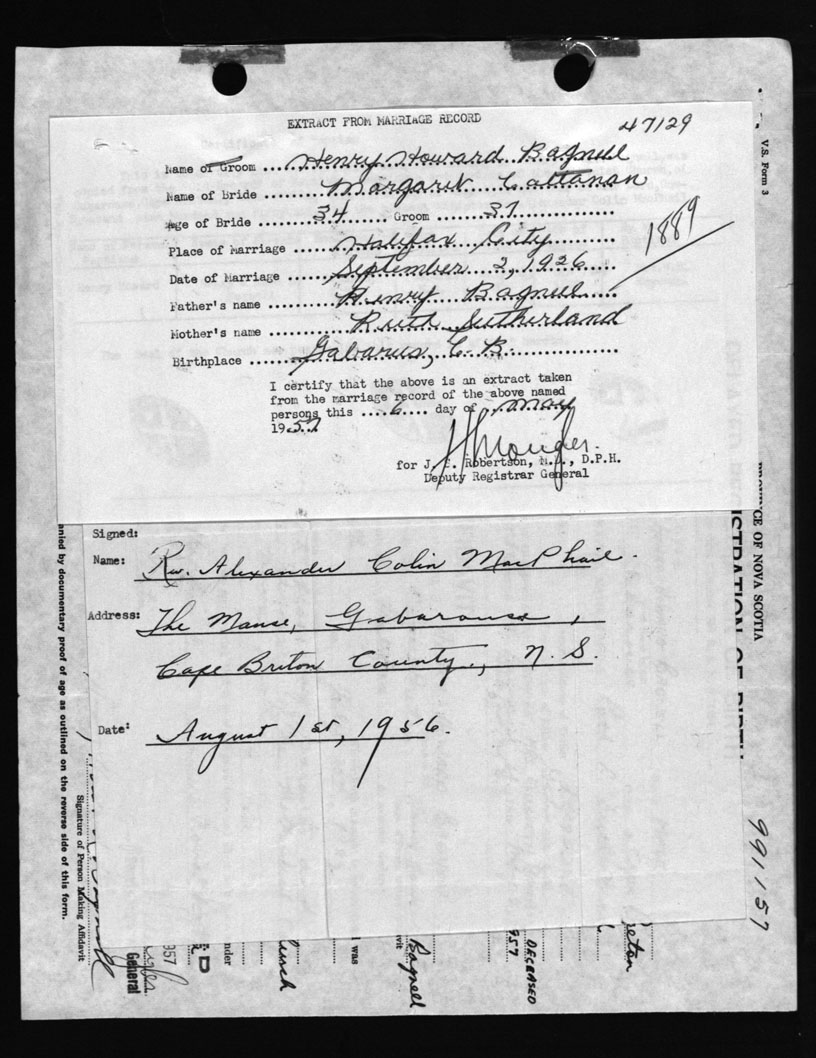 EXTRACT FROM MARRIAGE RECORD
47129
Name of Groom ... Henry Howard Bagnell
Name of Bride ... Margaret Cattanan
Age of Bride ... 34 ... Groom ... 37
Place of Marriage ... Halifax City
1889
Date of Marriage ... September 2, 1926
Father's name ... Henry Bagnell
Mother's name ... Ruth Sutherland
Birthplace ... Gabarus, C. B.
I certify that the above is an extract taken
from the marriage record of the above named
persons this ... 6 ... day of ... May
1957
for J. Robertson, M.D., D.P.H.
Deputy Registrar General
Signed:
Name: Rev. Alexander Colin MacPhail.
Address: The Manse, Gabarouse,
Cape Breton County, N. S.
Date: August 1st, 1956.
V.S. Form 3
CE OF NOVA SCOTIA
ISTRATION OF BIRTH
991157
anied by documentary proof of age as outlined on the reverse side of this form.
Signature of Person Making Affidavit
General
957
D
nder
I was
vit
Bagnell
957
DECEASED
reton